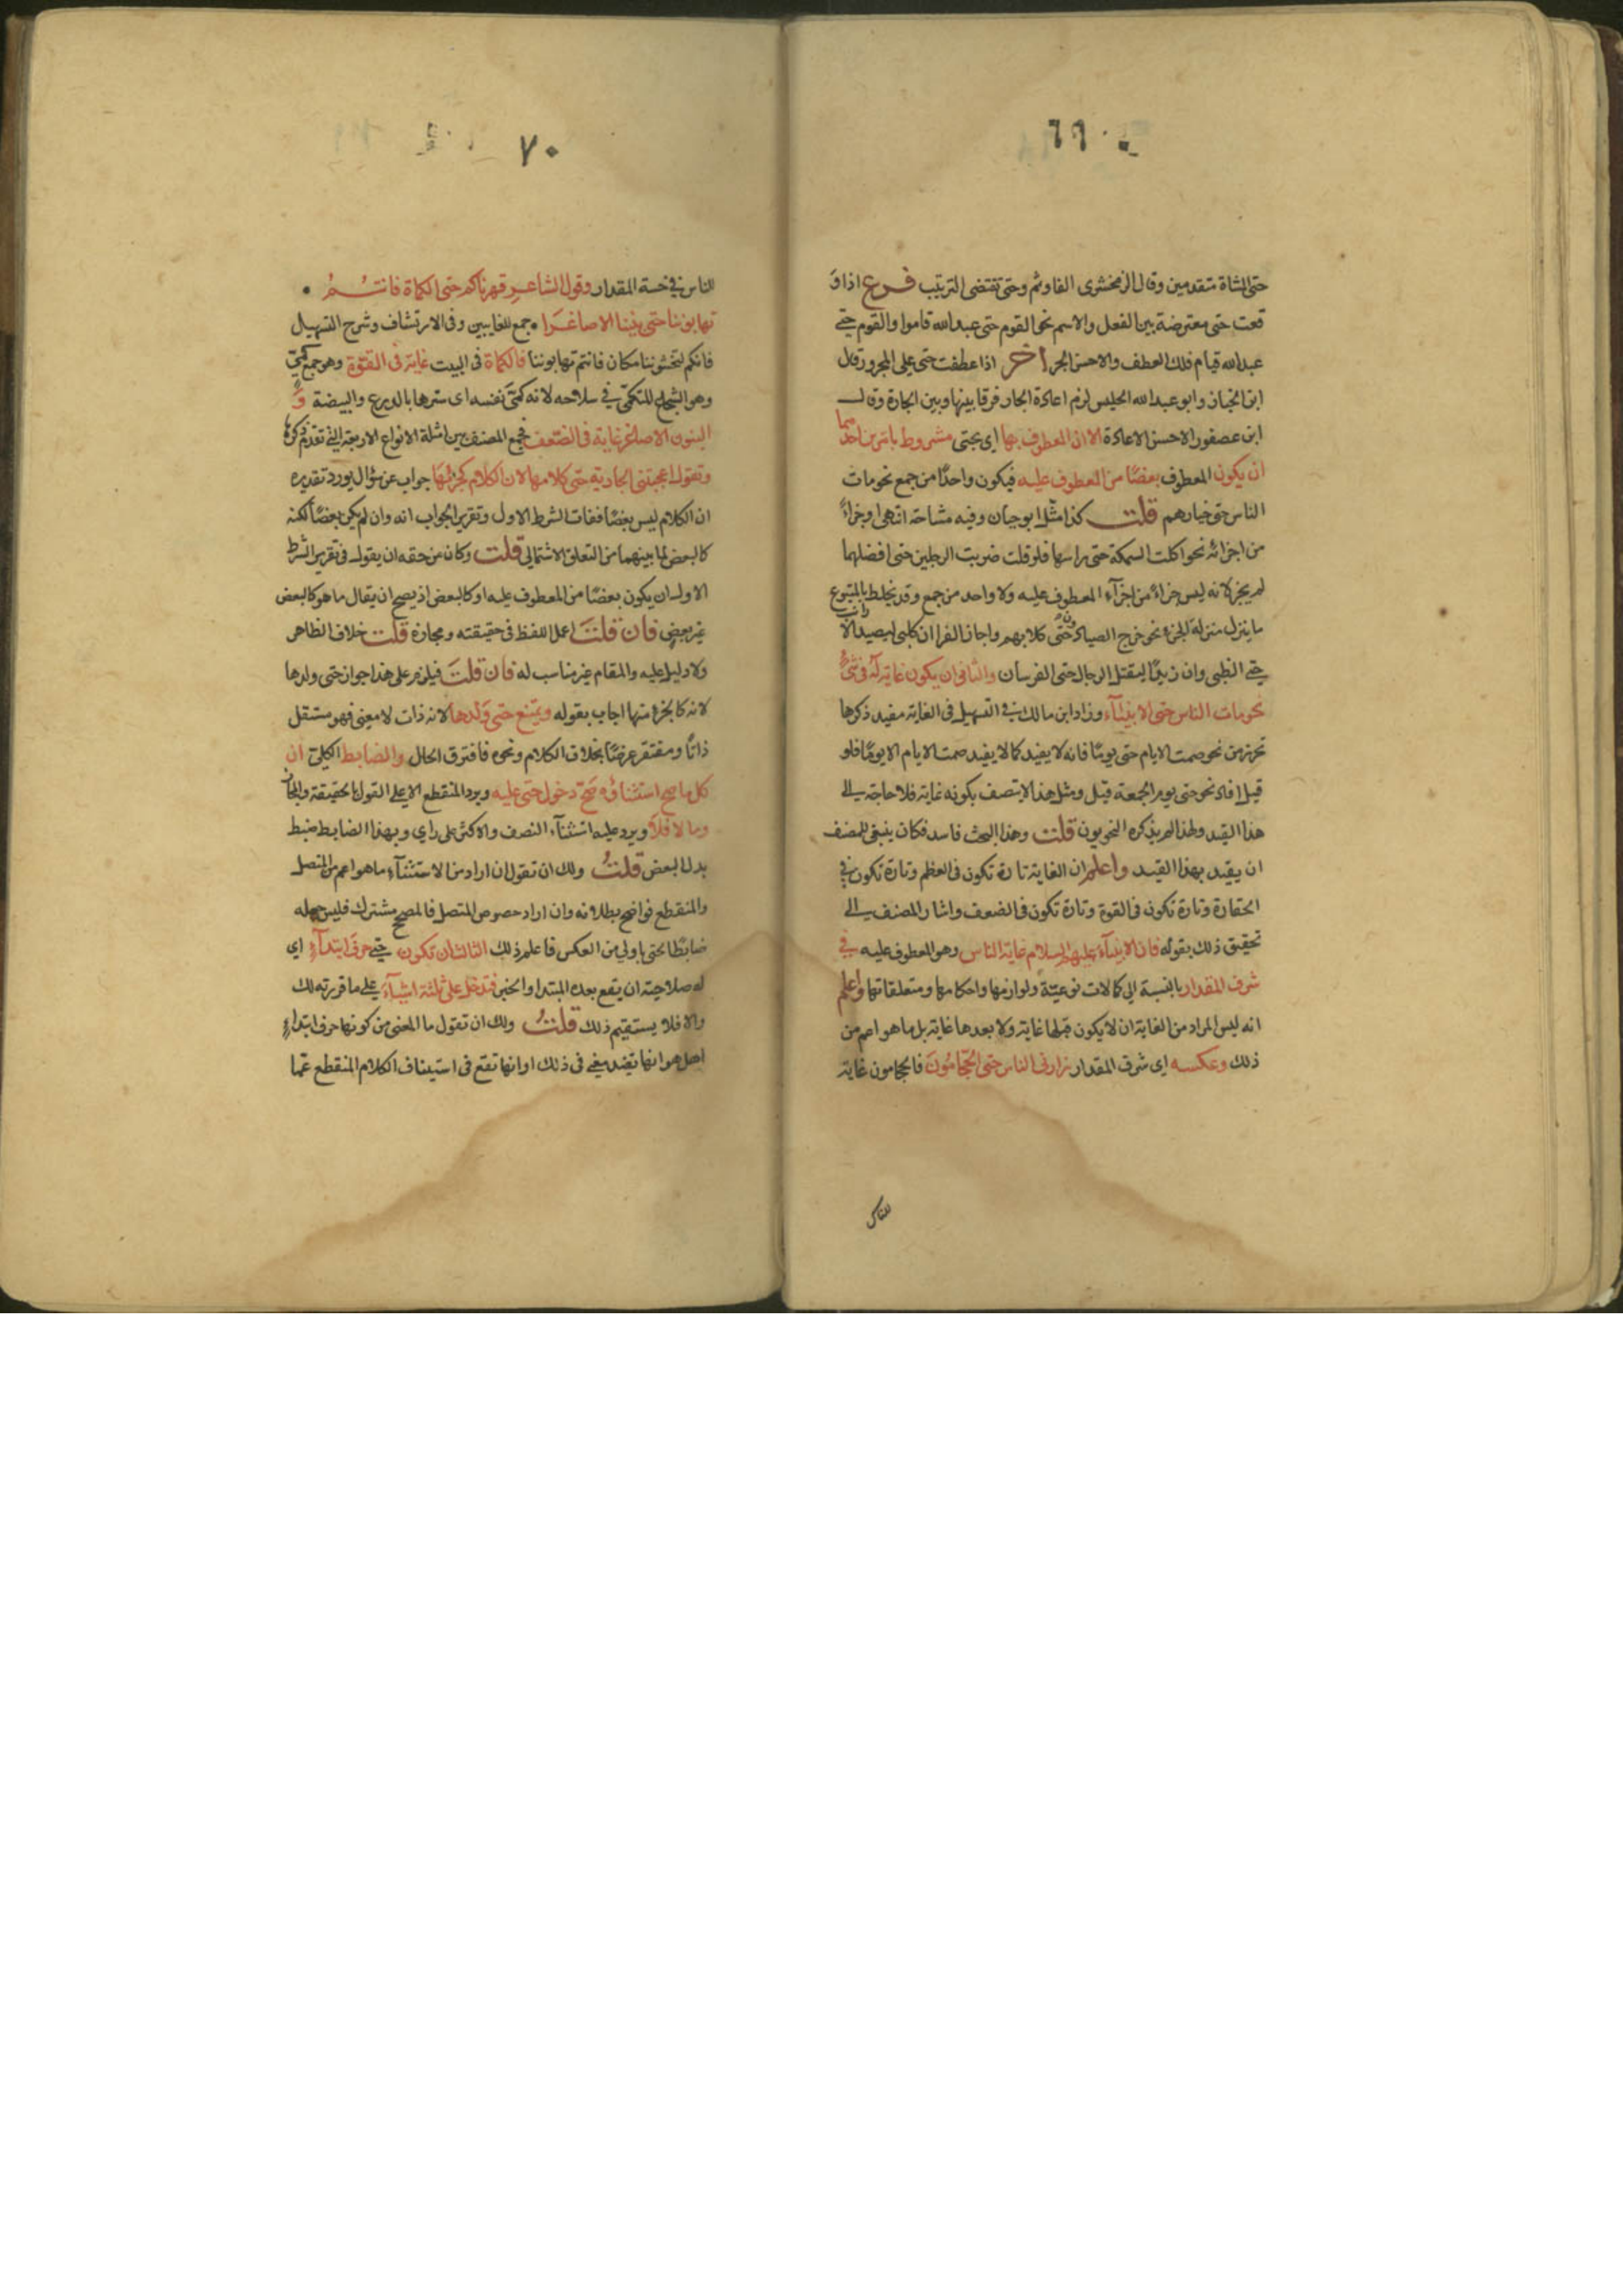 ٦٩
حتى الشاة متقدمين وقال الزمخشرى الفا وثم وحتى تقتضى الترتيب فرع اذا و
قعت حتى معترضة بين الفعل والاسم نحو القوم حتى عبد الله قاموا والقوم حتى
عبد الله قيام فلك العطف والاحسن الجر اخر اذا عطفت حتى على المجرور قال
ابن الخباز وابو عبد الله الجليس لزم اعادة الجار فرقا بينها وبين الجارة وقال
ابن عصفور الاحسن الاعادة الا ان المعطوف بها اى بحتى مشروط بامرين احدهما
ان يكون المعطوف بعضًا من المعطوف عليه فيكون واحدًا من جمع نحو مات
الناس حتى خيارهم قلت كذا مثل ابو حيان وفيه مشاحة انتهى او جزاءً
من اجزائه نحو اكلت السمكة حتى راسها فلو قلت ضربت الرجلين حتى افضلهما
لم يجز لانه ليس جزاءً من اجزآء المعطوف عليه ولا واحد من جمع وقد يخلط بالمتبوع
ما ينزل منزلة الجزء نحو خرج الصيادون حتى كلابهم واجاز الفرا ان كلبى ليصيد الارانب
حتى الظبى وان زيدًا ليقتل الرجال حتى الفرسان والثانى ان يكون غاية له فى شىء
نحو مات الناس حتى الانبيآء وزاد ابن مالك فى التسهيل فى الغاية مفيد ذكرها
تحرز من نحو صمت الايام حتى يومًا فانه لا يفيد كما لا يفيد صمت الايام الا يومًا فلو
قيل افاد نحو حتى يوم الجمعة قبل ومثل هذا لا يتصف بكونه غاية فلا حاجة الى
هذا القيد ولهذا لم يذكره النحويون قلت وهذا البحث فاسد فكان ينبغى للمصنف
ان يقيد بهذا القيد واعلم ان الغاية تارة تكون فى العظم وتارة تكون فى
الحقارة وتارة تكون فى القوة وتارة تكون فى الضعف واشار المصنف الى
تحقيق ذلك بقوله فان الانبيآء عليهم السلام غاية الناس وهو المعطوف عليه فى
شرف المقدار بالنسبة الى كمالات نوعية ولوازمها واحكامها ومتعلقاتها واعلم
انه ليس المراد من الغاية ان لا يكون قبلها غاية ولا بعدها غاية بل ما هو اعم من
ذلك وعكسه اى شرف المقدار زارنى الناس حتى الحجامون فالحجامون غاية
للناس
٧٠
للناس فى خسة المقدار وقول الشاعر قهرناكم حتى الكماة فانتم •
تهابوننا حتى بنينا الاصاغرا • جمع للغايبين وفى الارتشاف وشرح التسهيل
فانكم لتخشوننا مكان فانتم تهابوننا فالكماة فى البيت غاية فى القوة وهو جمع كمى
وهو الشجاع المتكمى فى سلاحه لانه كمى نفسه اى سترها بالدرع والبيضة و
البنون الاصاغر غاية فى الضعف فجمع المصنف بين امثلة الانواع الاربعة التى تقدم ذكرها
وتقول اعجبتنى الجارية حتى كلامها لان الكلام كجزئها جواب عن سؤال يورد تقديره
ان الكلام ليس بعضًا ففات الشرط الاول وتقرير الجواب انه وان لم يكن بعضًا لكنه
كالبعض لما بينهما من التعلق الاشتمالى قلت وكان من حقه ان يقول فى تقرير الشرط
الاول ان يكون بعضًا من المعطوف عليه او كالبعض اذ يصح ان يقال ما هو كالبعض
غير بعض فان قلت اعمل اللفظ فى حقيقته ومجازه قلت خلاف الظاهر
ولا دليل عليه والمقام غير مناسب له فان قلت فيلزم على هذا جواز حتى ولدها
لانه كالجزء منها اجاب بقوله ويمتنع حتى ولدها لانه ذات لا معنى فهو مستقل
ذاتًا ومفتقر عرضًا بخلاف الكلام ونحوه فافترق الحال والضابط الكلى ان
كل ما صح استثناؤه صح دخول حتى عليه ويرد المنقطع الا على القول بالحقيقة والمجاز
وما لا فلا ويرد عليه استثنآء النصف والاكثر على راى وبهذا الضابط ضبط
بدل البعض قلت ولك ان تقول ان اراد من الاستثنآء ما هو اعم من المتصل
والمنقطع فواضح بطلانه وان اراد خصوص المتصل فالمصحح مشترك فليس جعله
ضابطًا لحتى باولى من العكس فاعلم ذلك الثالث ان تكون حتى حرف ابتدآء اى
له صلاحية ان يقع بعده المبتدا والخبر فتدخل على ثلثة اشيآء على ما قررته لك
والا فلا يستقيم ذلك قلت ولك ان تقول ما المعنى من كونها حرف ابتداء
اهل هو انها تفيد معنى فى ذلك او انها تقع فى استيناف الكلام المنقطع عما